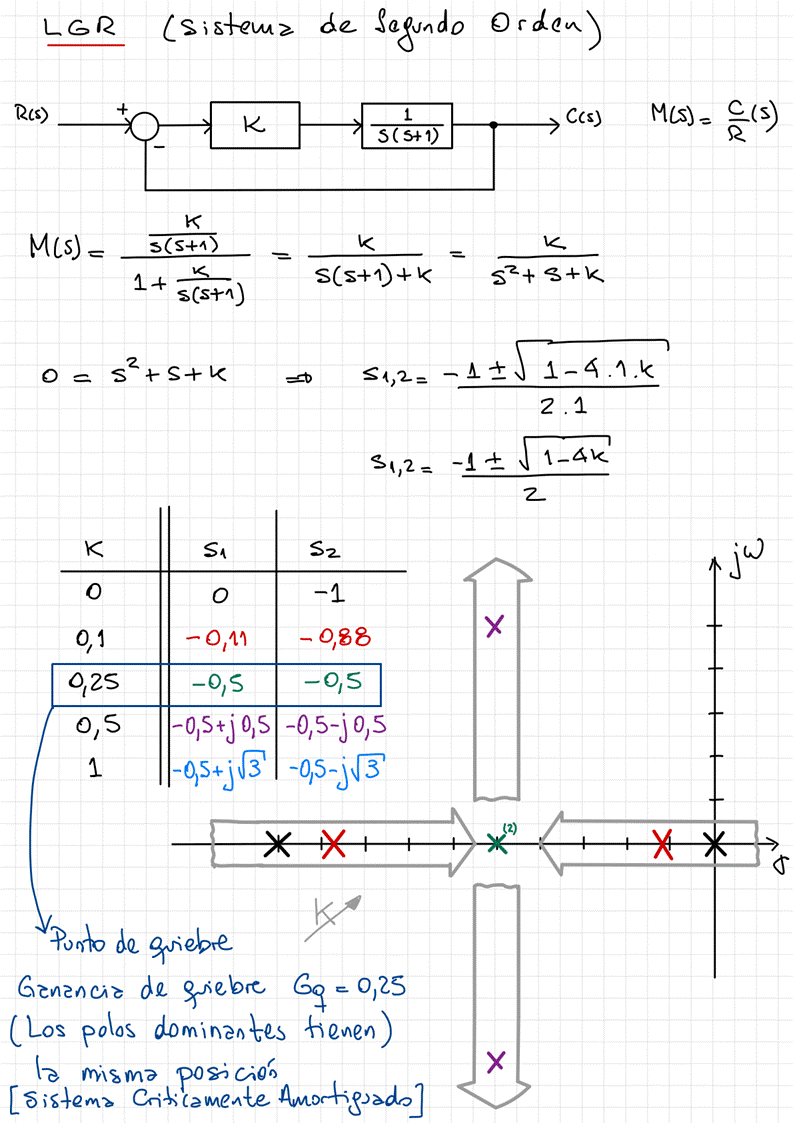 LGR (Sistema de Segundo Orden)
R(s) + − K 1/(s(s+1)) C(s) M(s) = C/R (s)
M(s) = (K/(s(s+1)))/(1 + K/(s(s+1))) = K/(s(s+1)+K) = K/(s²+s+K)
0 = s²+s+K ⇒ s1,2 = (-1 ± √(1-4.1.K))/(2.1)
s1,2 = (-1 ± √(1-4K))/2
K S1 S2
0 0 -1
0,1 -0,11 -0,88
0,25 -0,5 -0,5
0,5 -0,5+j0,5 -0,5-j0,5
1 -0,5+j√3 -0,5-j√3
jω
(2)
σ
K
Punto de quiebre
Ganancia de quiebre Gq = 0,25
(Los polos dominantes tienen)
la misma posición
[Sistema Criticamente Amortiguado]